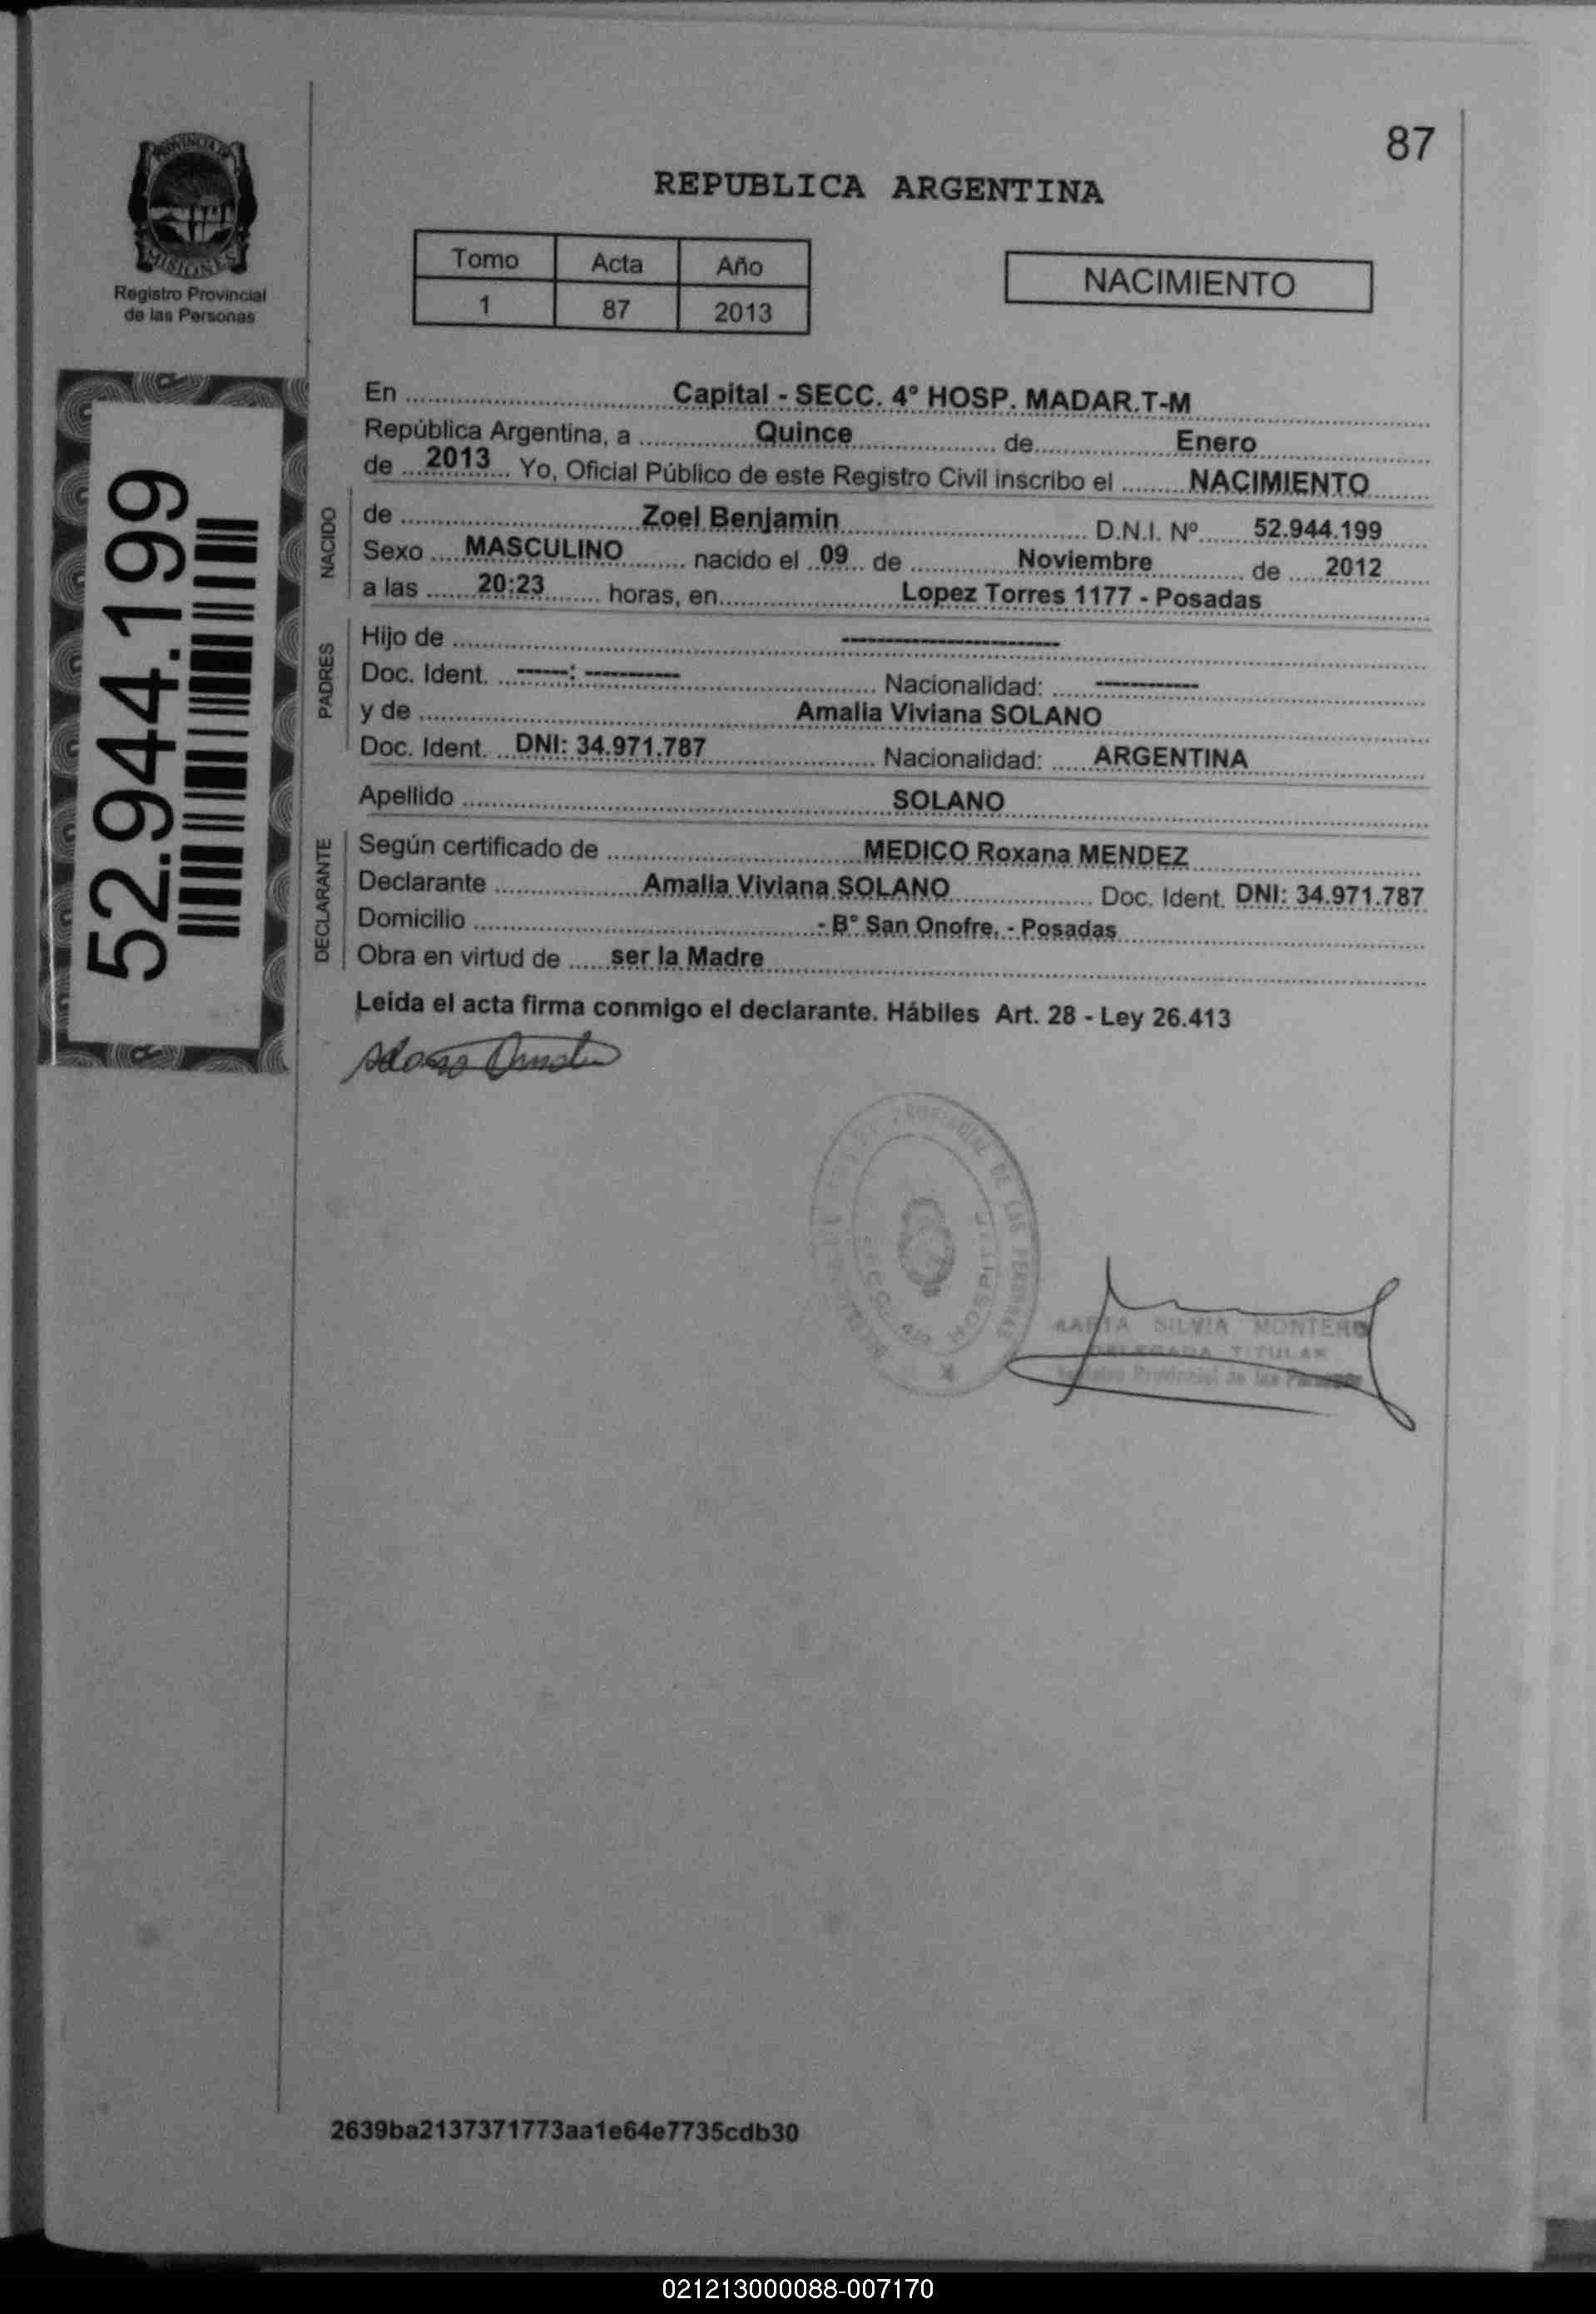 87
PROVINCIA DE
MISIONES
Registro Provincial
de las Personas
REPUBLICA ARGENTINA
Tomo Acta Año
1 87 2013
NACIMIENTO
52.944.199
En Capital - SECC. 4º HOSP. MADAR.T-M
República Argentina, a Quince de Enero
de 2013 Yo, Oficial Público de este Registro Civil inscribo el NACIMIENTO
NACIDO
de Zoel Benjamin D.N.I. Nº 52.944.199
Sexo MASCULINO nacido el 09 de Noviembre de 2012
a las 20:23 horas, en Lopez Torres 1177 - Posadas
PADRES
Hijo de --------------------
Doc. Ident. -----: ---------- Nacionalidad: ------------
y de Amalia Viviana SOLANO
Doc. Ident. DNI: 34.971.787 Nacionalidad: ARGENTINA
Apellido SOLANO
DECLARANTE
Según certificado de MEDICO Roxana MENDEZ
Declarante Amalia Viviana SOLANO Doc. Ident. DNI: 34.971.787
Domicilio - Bº San Onofre, - Posadas
Obra en virtud de ser la Madre
Leida el acta firma conmigo el declarante. Hábiles Art. 28 - Ley 26.413
PROVINCIAL DE LAS PERSONAS
MARIA SILVIA MONTERO
DELEGADA TITULAR
Registro Provincial de las Personas
2639ba2137371773aa1e64e7735cdb30
021213000088-007170